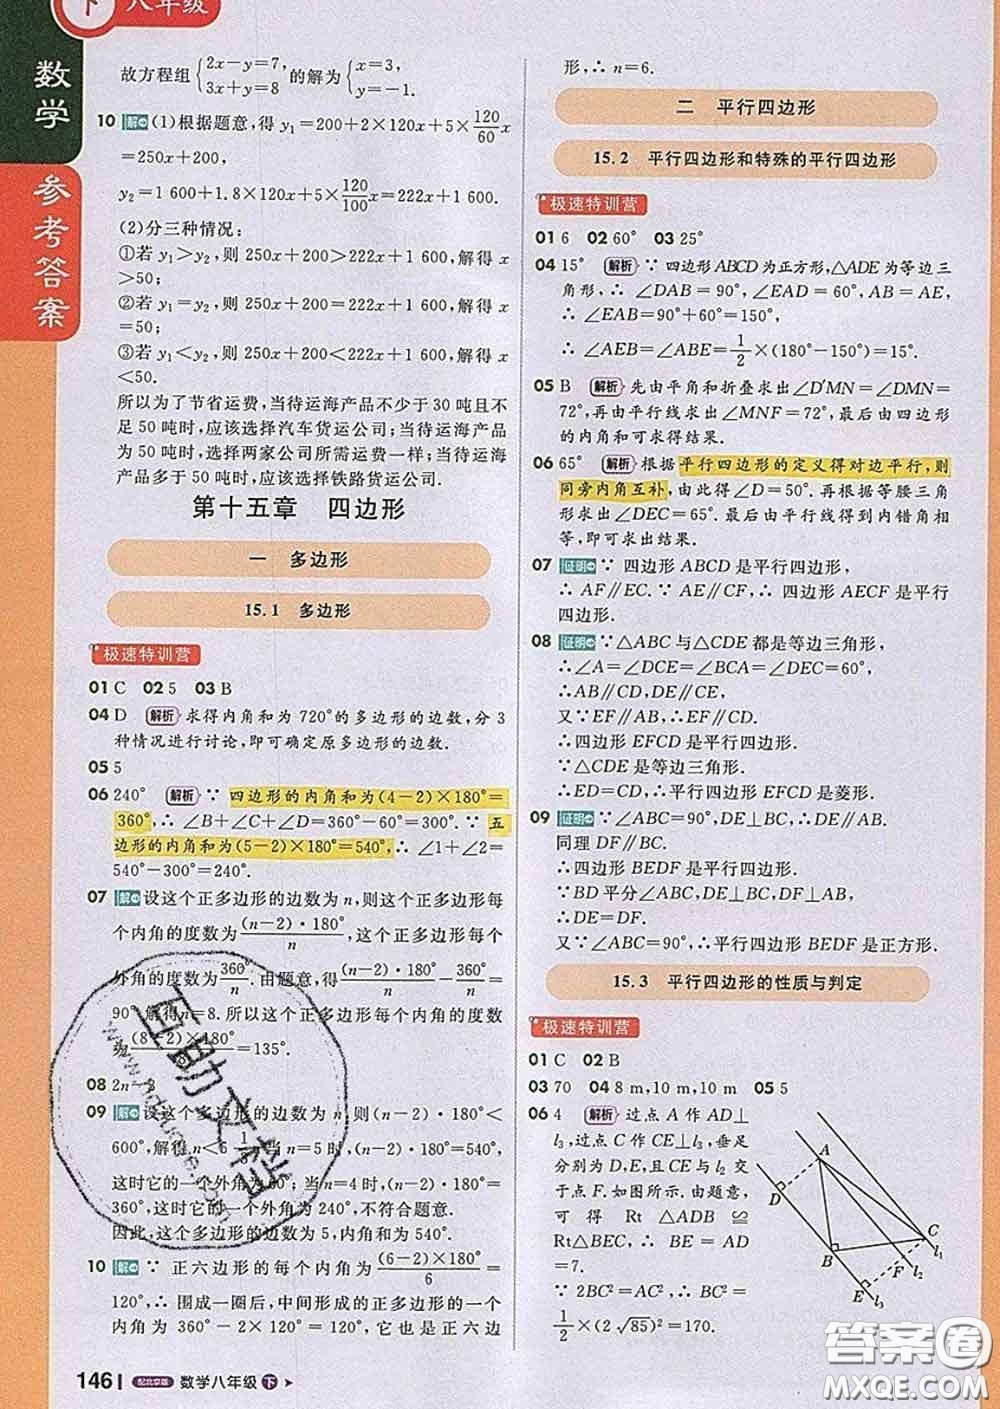 下 八年级
数学
参考答案
故方程组{2x-y=7, 3x+y=8 的解为{x=3, y=-1.
10 解 (1)根据题意,得 y₁=200+2×120x+5×120/60x
=250x+200,
y₂=1 600+1.8×120x+5×120/100x=222x+1 600.
(2)分三种情况:
①若 y₁>y₂,则 250x+200>222x+1 600,解得 x
>50;
②若 y₁=y₂,则 250x+200=222x+1 600,解得 x
=50;
③若 y₁<y₂,则 250x+200<222x+1 600,解得 x
<50.
所以为了节省运费,当待运海产品不少于 30 吨且不
足 50 吨时,应该选择汽车货运公司;当待运海产品
为 50 吨时,选择两家公司所需运费一样;当待运海
产品多于 50 吨时,应该选择铁路货运公司.
第十五章 四边形
一 多边形
15.1 多边形
极速特训营
01 C 02 5 03 B
04 D 解析 求得内角和为 720°的多边形的边数,分 3
种情况进行讨论,即可确定原多边形的边数.
05 5
06 240° 解析 ∵ 四边形的内角和为(4-2)×180°=
360°,∴ ∠B+∠C+∠D=360°-60°=300°.∵ 五
边形的内角和为(5-2)×180°=540°,∴ ∠1+∠2=
540°-300°=240°.
07 解 设这个正多边形的边数为 n,则这个正多边形每
个内角的度数为(n-2)·180°/n,这个正多边形每个
外角的度数为360°/n.由题意,得(n-2)·180°/n-360°/n=
90°,解得n=8.所以这个正多边形每个内角的度数
为(8-2)×180°/8=135°.
08 2n-3
09 解 设这个多边形的边数为 n,则(n-2)·180°<
600°,解得 n<5 1/3.当 n=5 时,(n-2)·180°=540°,
这时它的一个外角为60°;当 n=4 时,(n-2)·180°=
360°,这时它的一个外角为 240°,不符合题意.
因此,这个多边形的边数为 5,内角和为 540°.
10 解 ∵ 正六边形的每个内角为(6-2)×180°/6=
120°,∴ 围成一圈后,中间形成的正多边形的一个
内角为 360°-2×120°=120°,它也是正六边
形,∴ n=6.
二 平行四边形
15.2 平行四边形和特殊的平行四边形
极速特训营
01 6 02 60° 03 25°
04 15° 解析 ∵ 四边形ABCD为正方形,△ADE为等边三
角形,∴ ∠DAB=90°,∠EAD=60°,AB=AE,
∴ ∠EAB=90°+60°=150°,
∴ ∠AEB=∠ABE=1/2×(180°-150°)=15°.
05 B 解析 先由平角和折叠求出∠D′MN=∠DMN=
72°,再由平行线求出∠MNF=72°,最后由四边形
的内角和可求得结果.
06 65° 解析 根据平行四边形的定义得对边平行,则
同旁内角互补,由此得∠D=50°.再根据等腰三角
形求出∠DEC=65°.最后由平行线得到内错角相
等,即可求出结果.
07 证明 ∵ 四边形 ABCD 是平行四边形,
∴ AF∥EC.又∵AE∥CF,∴ 四边形 AECF 是平行
四边形.
08 证明 ∵△ABC与△CDE都是等边三角形,
∴∠A=∠DCE=∠BCA=∠DEC=60°,
∴AB∥CD,DE∥CE,
又∵EF∥AB,∴EF∥CD.
∴四边形 EFCD 是平行四边形.
∵△CDE是等边三角形.
∴ED=CD,∴平行四边形 EFCD 是菱形.
09 证明 ∵∠ABC=90°,DE⊥BC,∴DE∥AB.
同理 DF∥BC.
∴四边形 BEDF 是平行四边形.
∵BD平分∠ABC,DE⊥BC,DF⊥AB,
∴DE=DF.
又∵∠ABC=90°,∴平行四边形 BEDF 是正方形.
15.3 平行四边形的性质与判定
极速特训营
01 C 02 B
03 70 04 8 m,10 m,10 m 05 5
06 4 解析 过点 A 作 AD⊥
l₃,过点 C 作 CE⊥l₃,垂足
分别为 D,E,且 CE 与 l₂ 交
于点 F.如图所示.由题意,
可得 Rt △ADB ≌
Rt△BEC,∴ BE=AD
=7.
∵ 2BC²=AC²,∴ BC²=
1/2×(2√85)²=170.
A
D
B
C
F
E
l₁
l₂
l₃
146 配北京版 数学八年级 下
互助文档
答案圈
MXQE.COM